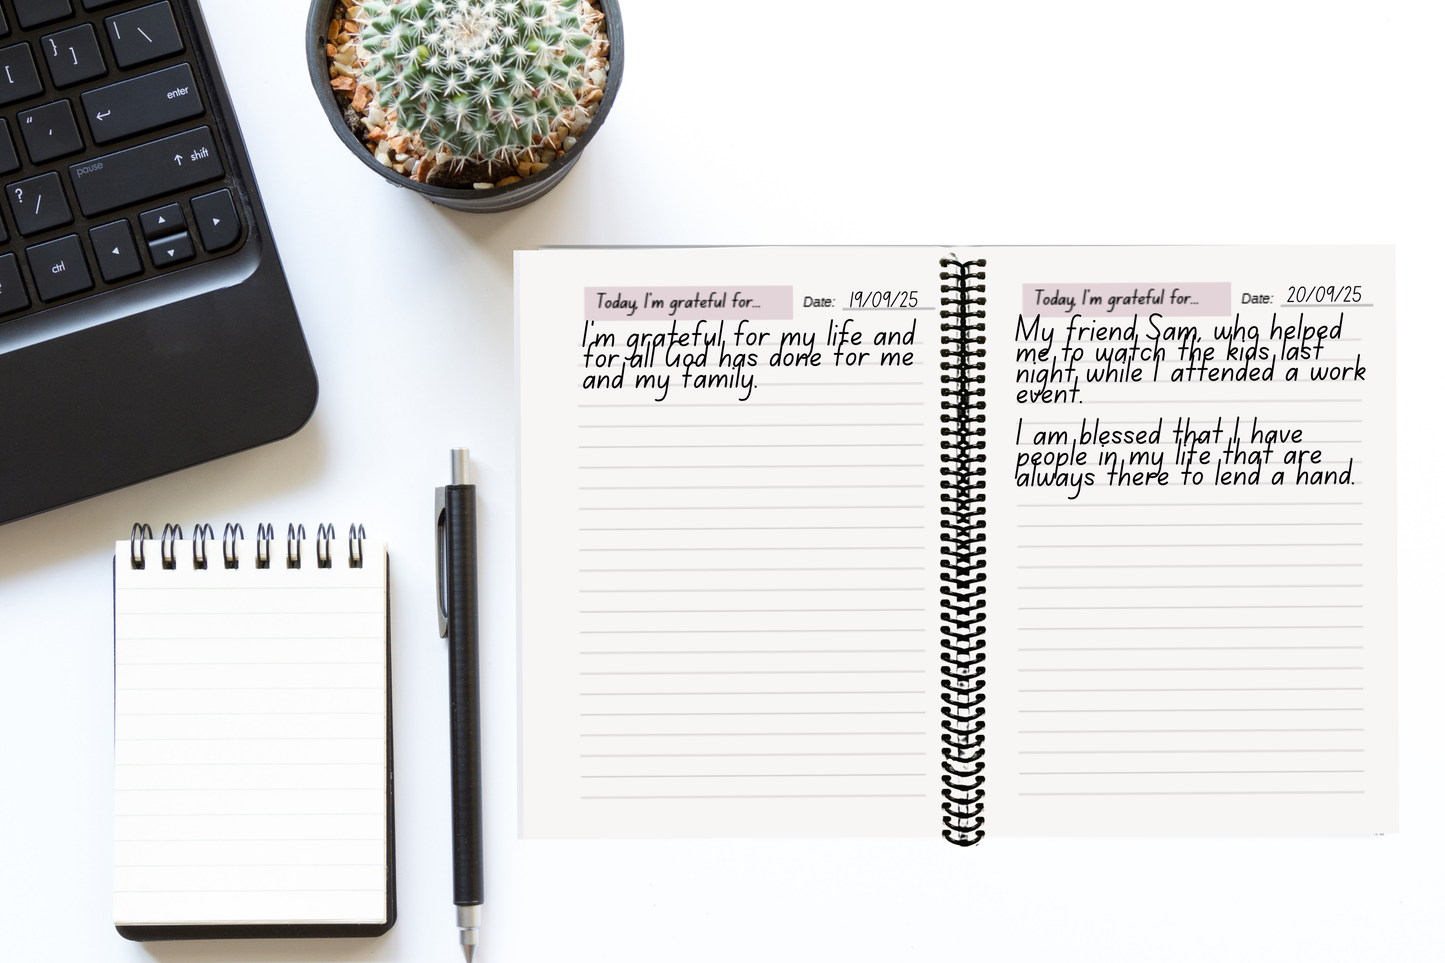 } ]
| \
[
enter
" '
pause shift
? /
ctrl
Today, I'm grateful for... Date: 19/09/25
I'm grateful for my life and
for all God has done for me
and my family.
Today, I'm grateful for... Date: 20/09/25
My friend Sam, who helped
me to watch the kids last
night while I attended a work
event.
I am blessed that I have
people in my life that are
always there to lend a hand.